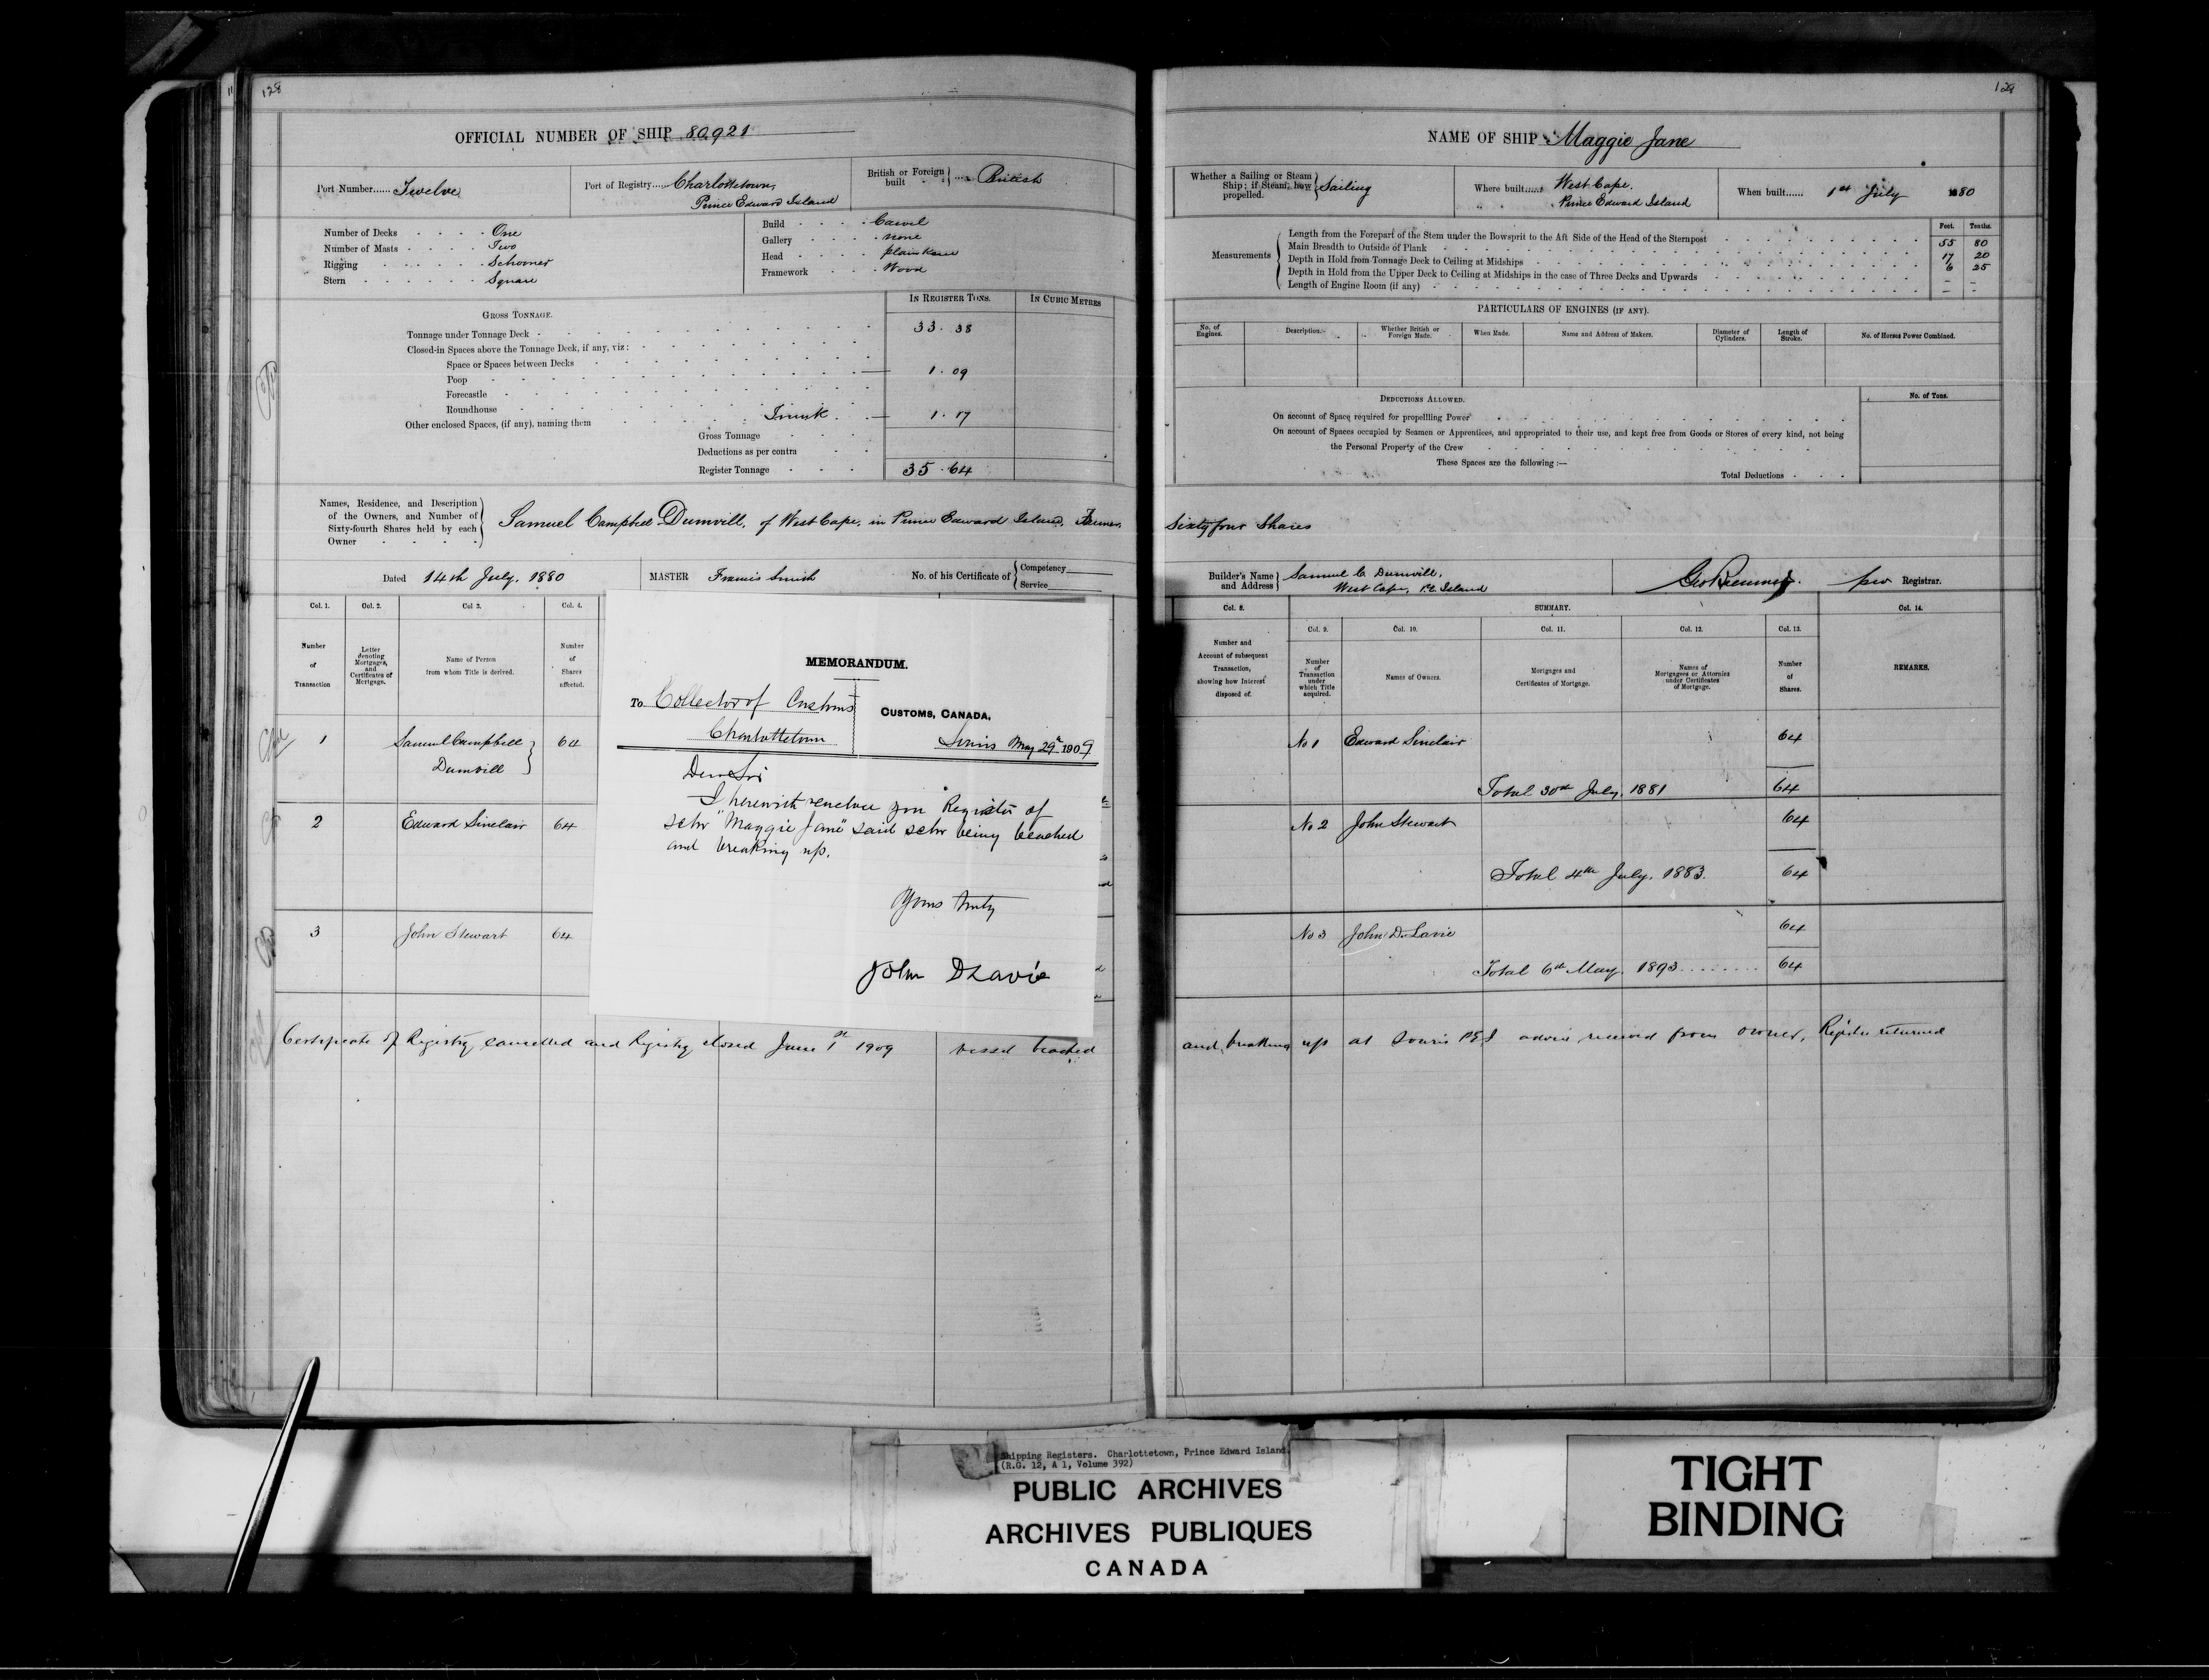 128
OFFICIAL NUMBER OF SHIP 80,921
Port Number...... Twelve
Port of Registry..... Charlottetown,
Prince Edward Island
British or Foreign built .... British
Number of Decks . . . . One
Number of Masts . . . . Two
Rigging . . . . . Schooner
Stern . . . . . . Square
Build . . . . Carvel
Gallery . . . . none
Head . . . . plain knee
Framework . . . Wood
IN REGISTER TONS.
IN CUBIC METRES
GROSS TONNAGE.
Tonnage under Tonnage Deck 33.38
Closed-in Spaces above the Tonnage Deck, if any, viz:
Space or Spaces between Decks
Poop 1.09
Forecastle
Roundhouse
Other enclosed Spaces, (if any), naming them Trunk 1.17
Gross Tonnage
Deductions as per contra
Register Tonnage 35.64
Names, Residence, and Description
of the Owners, and Number of
Sixty-fourth Shares held by each
Owner
Samuel Campbell Dumvill, of West Cape, in Prince Edward Island, Farmer,
Dated 14th July, 1880
MASTER Francis Smith
No. of his Certificate of Competency
Service
Col. 1.
Col. 2.
Col 3.
Col. 4.
Number of Transaction
Letter denoting Mortgages, and Certificates of Mortgage.
Name of Person from whom Title is derived.
Number of Shares affected.
1 Samuel Campbell Dumvill 64
2 Edward Sinclair 64
3 John Stewart 64
MEMORANDUM.
To Collector of Customs
Charlottetown
CUSTOMS, CANADA,
Souris May 29th 1909
Dear Sir
I herewith enclose you Register of
schr "Maggie Jane" said schr being beached
and breaking up.
Yours truly
John D Lavie
Certificate of Registry cancelled and Registry closed June 1st 1909 vessel beached
129
NAME OF SHIP Maggie Jane
Whether a Sailing or Steam Ship; if Steam, how propelled. Sailing
Where built...... West Cape,
Prince Edward Island
When built...... 1st July 1880
Measurements
Feet. Tenths.
Length from the Forepart of the Stem under the Bowsprit to the Aft Side of the Head of the Sternpost 55 80
Main Breadth to Outside of Plank 17 20
Depth in Hold from Tonnage Deck to Ceiling at Midships 6 25
Depth in Hold from the Upper Deck to Ceiling at Midships in the case of Three Decks and Upwards - -
Length of Engine Room (if any) - -
PARTICULARS OF ENGINES (IF ANY).
No. of Engines.
Description.
Whether British or Foreign Made.
When Made.
Name and Address of Makers.
Diameter of Cylinders.
Length of Stroke.
No. of Horses Power Combined.
DEDUCTIONS ALLOWED.
No. of Tons.
On account of Space required for propellling Power
On account of Spaces occupied by Seamen or Apprentices, and appropriated to their use, and kept free from Goods or Stores of every kind, not being
the Personal Property of the Crew
These Spaces are the following :—
Total Deductions
Sixty four Shares
Builder's Name and Address Samuel C. Dumvill,
West Cape, P.E. Island
Registrar.
Col. 8.
SUMMARY.
Col. 14.
Col. 9.
Col. 10.
Col. 11.
Col. 12.
Col. 13.
Number and Account of subsequent Transaction, showing how Interest disposed of.
Number of Transaction under which Title acquired.
Names of Owners.
Mortgages and Certificates of Mortgage.
Names of Mortgagees or Attornies under Certificates of Mortgage.
Number of Shares.
REMARKS.
No 1 Edward Sinclair 64
Total 30th July, 1881 64
No 2 John Stewart 64
Total 4th July, 1883. 64
No 3 John D. Lavie 64
Total 6th May, 1893 ........ 64
and breaking up at Souris PEI advice received from owner, Register returned
Shipping Registers. Charlottetown, Prince Edward Island
(R.G. 12, A 1, Volume 392)
PUBLIC ARCHIVES
ARCHIVES PUBLIQUES
CANADA
TIGHT
BINDING